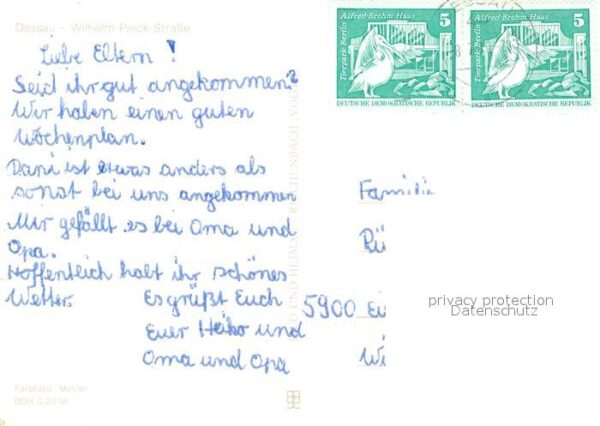 Dessau - Wilhelm-Pieck-Straße
Liebe Eltern!
Seid ihr gut angekommen?
Wir haben einen guten
Wochenplan.
Dani ist etwas anders als
sonst bei uns angekommen
Mir gefällt es bei Oma und
Opa.
Hoffentlich habt ihr schönes
Wetter.
Es grüßt Euch
Euer Heiko und
Oma und Opa
Farbfoto:
DDR 0,20 M
Alfred-Brehm-Haus 5
Tierpark Berlin
DEUTSCHE DEMOKRATISCHE REPUBLIK
Alfred-Brehm-Haus 5
Tierpark Berlin
DEUTSCHE DEMOKRATISCHE REPUBLIK
Familie
Rü
5900 Ei
Wi
privacy protection
Datenschutz